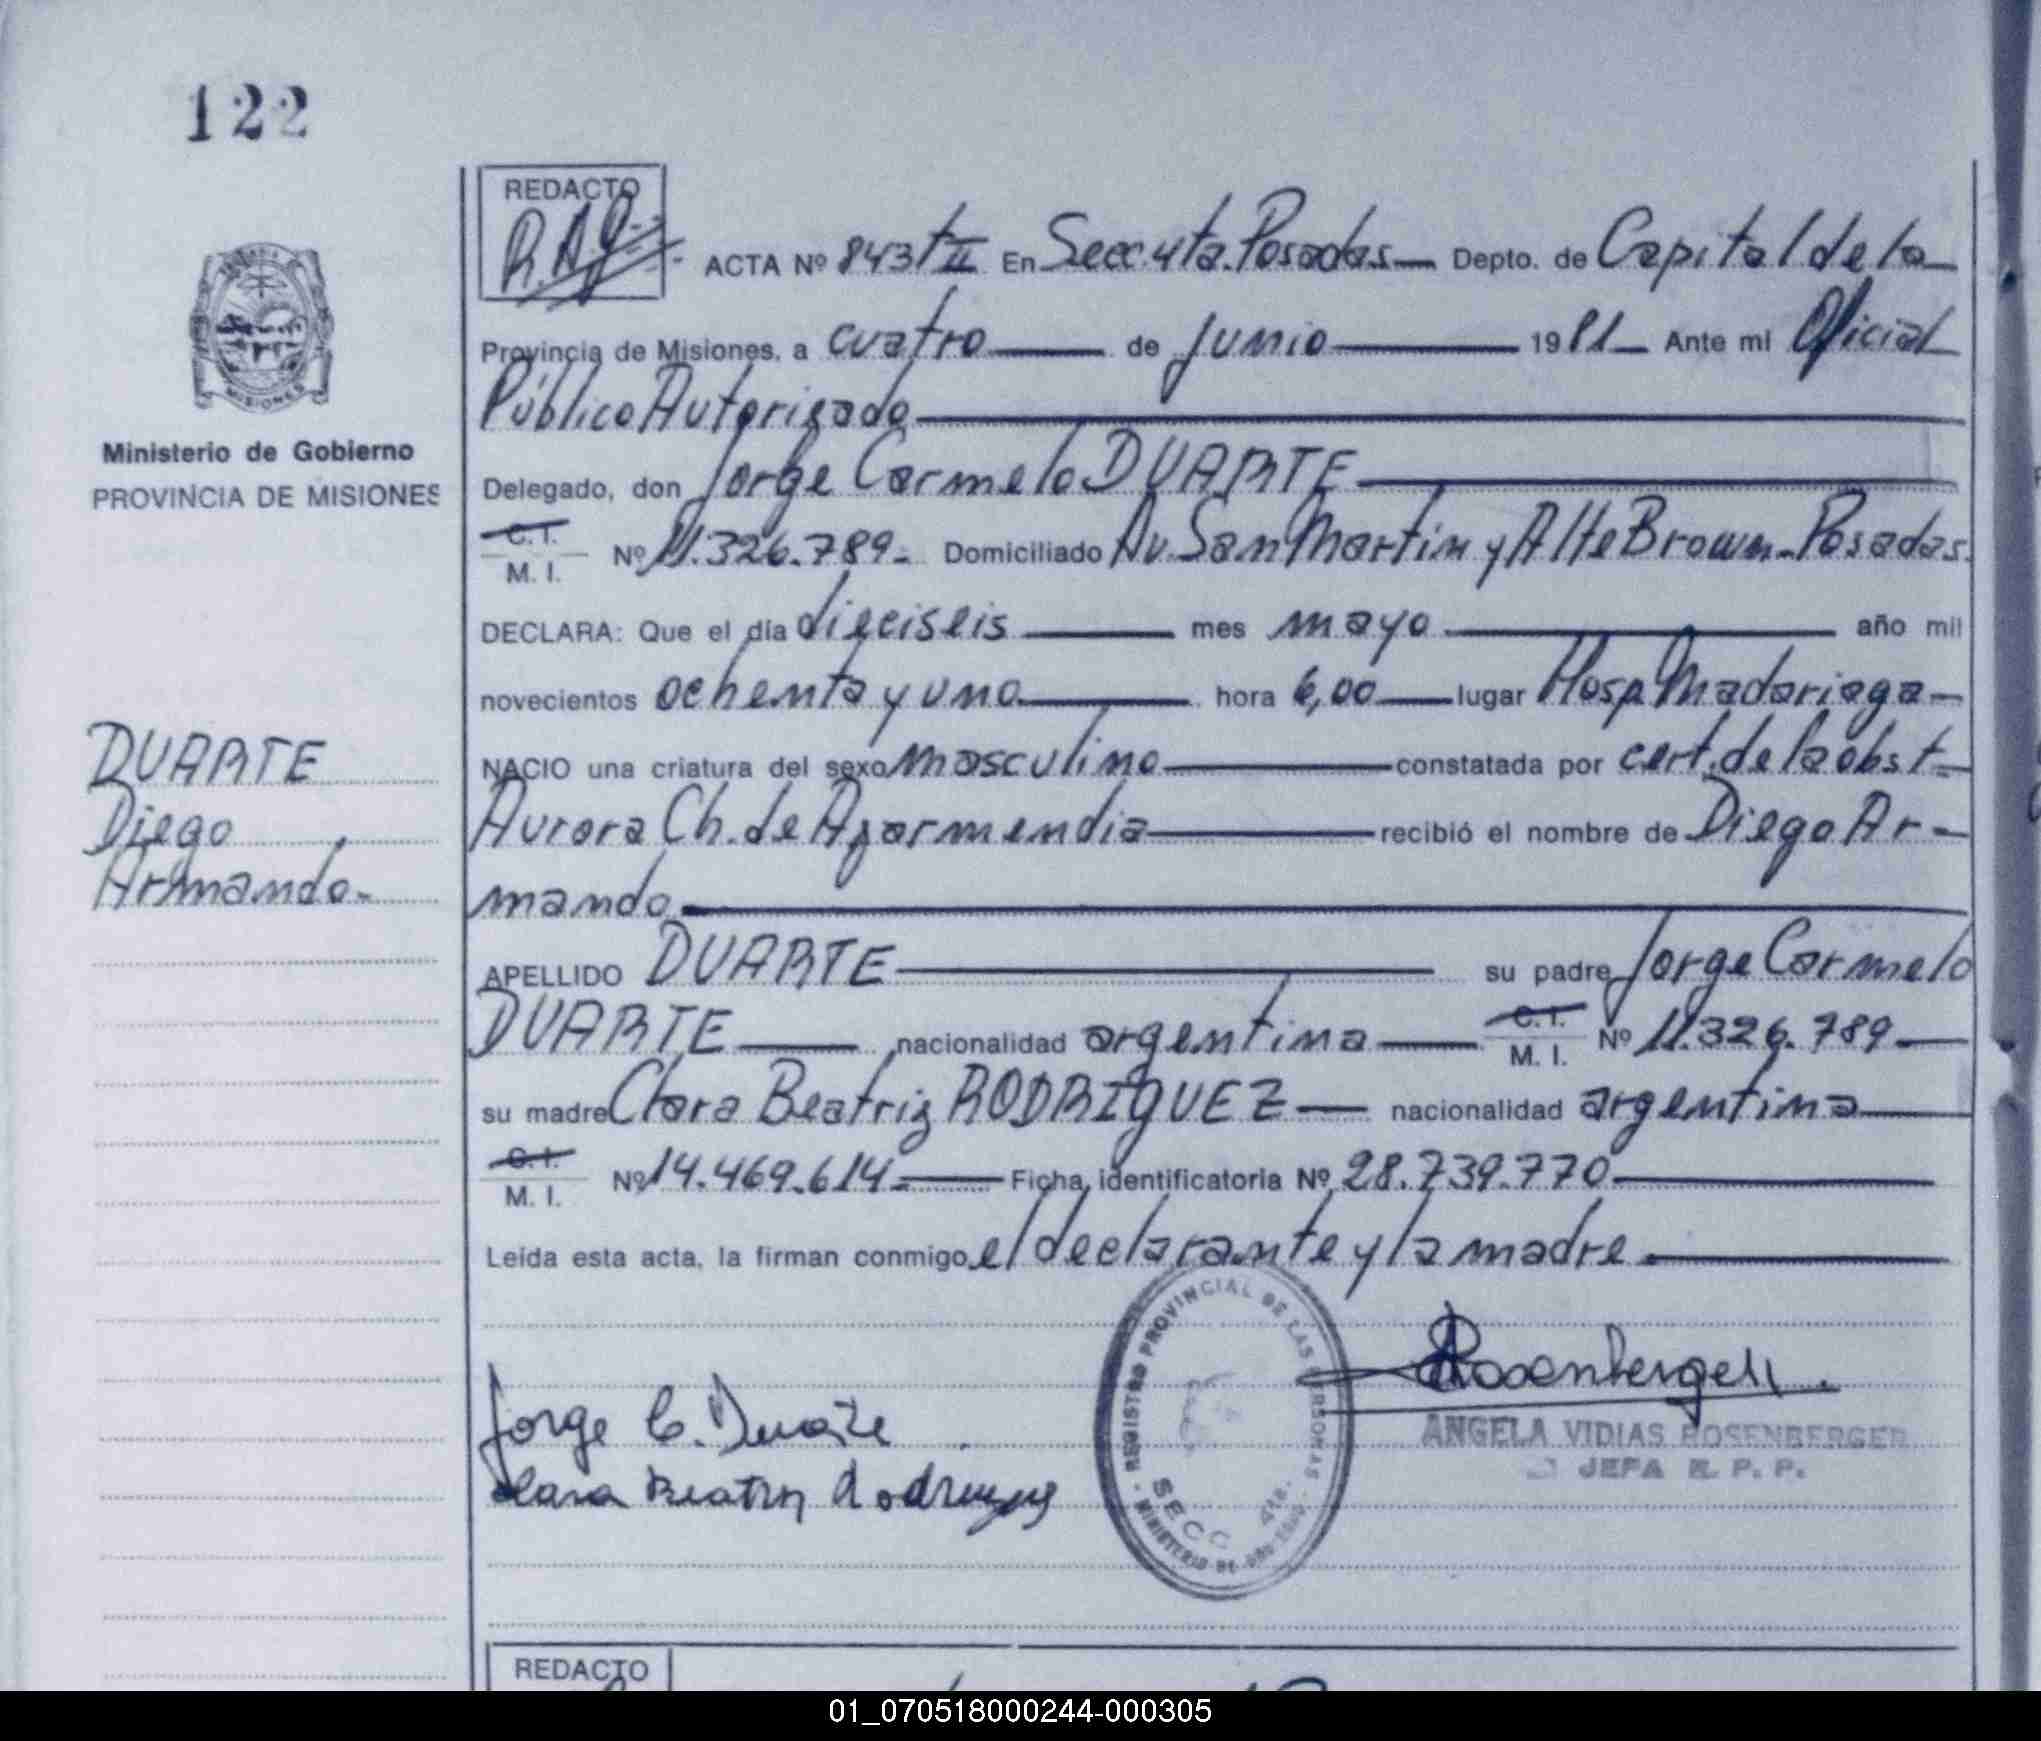 122
REDACTO
R.A.G.
ACTA Nº 843 t II En Secc. 4ta. Posadas Depto. de Capital de la
Provincia de Misiones, a cuatro de junio 1981 Ante mi Oficial
Público Autorizado
Ministerio de Gobierno
PROVINCIA DE MISIONES
Delegado, don Jorge Carmelo DUARTE
C.I.
M. I. Nº 11.326.789.- Domiciliado Av. San Martin y Alte Brown - Posadas.
DECLARA: Que el día dieciseis mes mayo año mil
novecientos ochenta y uno hora 6,00 lugar Hosp Madariaga-
NACIO una criatura del sexo masculino constatada por cert. de la obst.
Aurora Ch. de Azarmendia recibió el nombre de Diego Ar-
mando
DUARTE
Diego
Armando.-
APELLIDO DUARTE su padre Jorge Carmelo
DUARTE nacionalidad argentina C.I.
M. I. Nº 11.326.789
su madre Clara Beatriz RODRIGUEZ nacionalidad argentina
C.I.
M. I. Nº 14.469.614.- Ficha identificatoria Nº 28.739.770
Leida esta acta, la firman conmigo el declarante y la madre.
Jorge C. Duarte
Clara Beatriz Rodriguez
REGISTRO PROVINCIAL DE LAS PERSONAS
SECC 4ta.
MINISTERIO DE
Rosenberger
ANGELA VIDIAS ROSENBERGER
JEFA R. P. P.
REDACTO
MISIONES
01_070518000244-000305